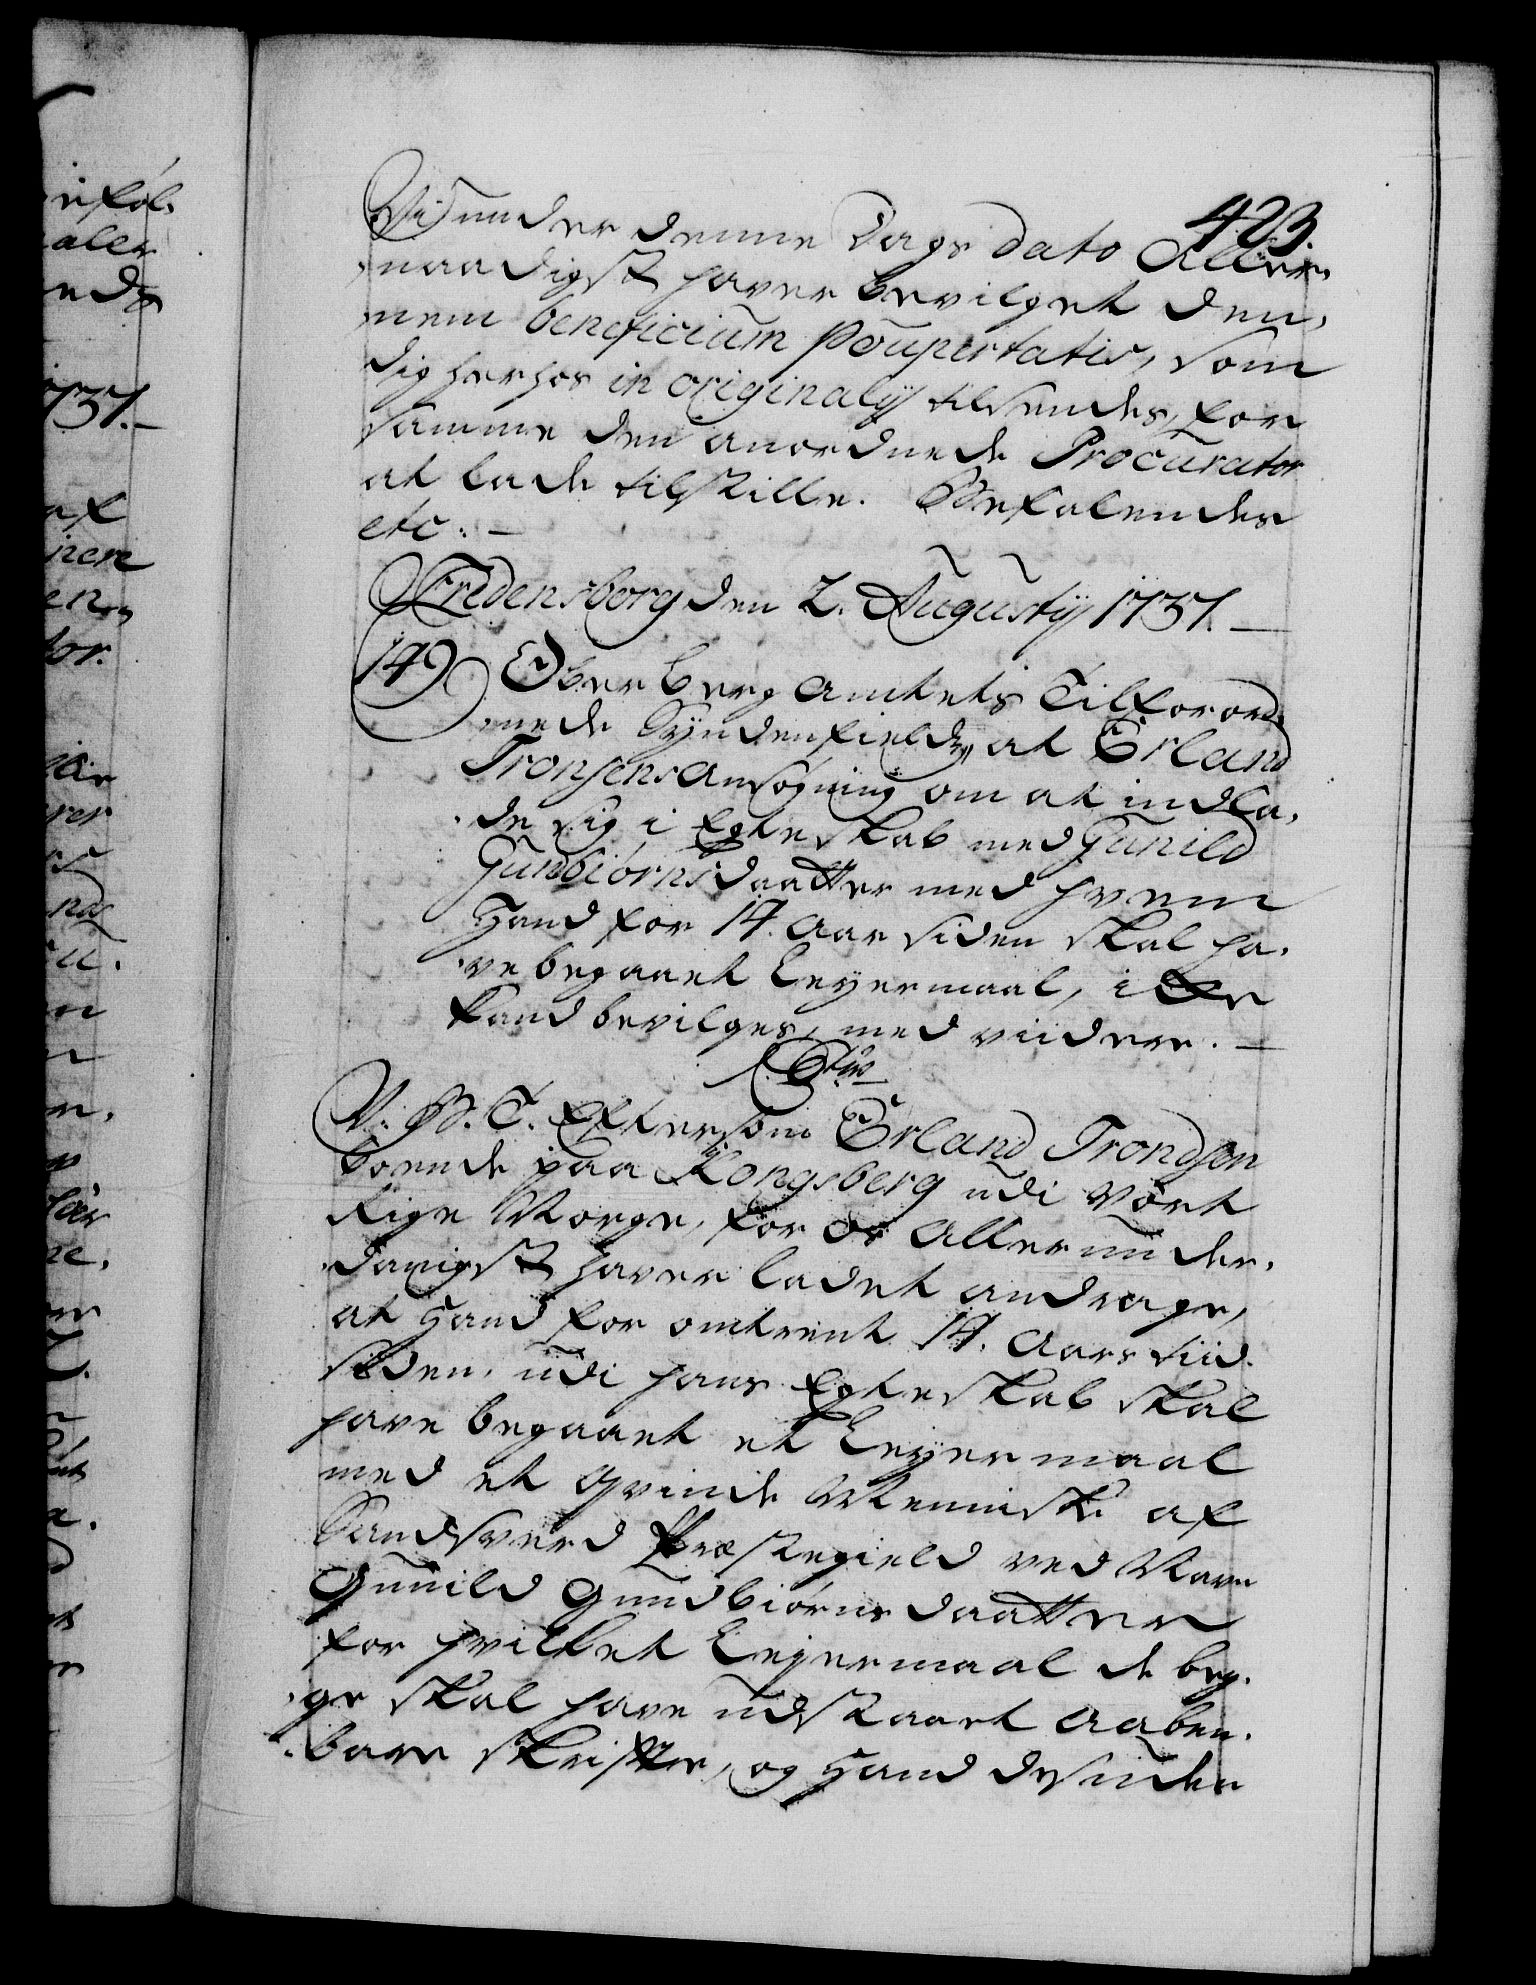 423.
Vi under denne Dags dato Aller,
naadigst haver bevilget den,
nem beneficium Paupertatis, som
dig herhos in originalij tilsendes, for
samme den anordnede Procurator
at lade tilstille. Befalendes
etc. —
Fredensborg den 2. Augustij 1737. —
149. Ober berg Amtets Tilforord,
nede Syndenfields, at Erland
Tronsens Ansøgning om at indla,
de sig i Egteskab med Gunild
Gunbiørnsdaatter med hvem
Hand for 14. Aar siden skal ha,
ve begaaet Leyermaal, icke
kand bevilges, med viidere. —
V. G. T. Eftersom Erland Trondsen
boende paa Kongsberg udi Vort
Rige Norge, for os Allerunder,
danigst haver ladet andrage,
at Hand for omtrent 14. Aars tiid
siden, udi hans Egteskab skal
have begaaet et Leyermaal
med et Qvinde Menniske af
Sandsverd Præstegield ved Navn
Gunild Gundbiørns daatter
for hvilket Leyermaal de beg,
ge skal have udstaaet aaben,
bare skrifte, og Hand desuden
irføl,
aler
eds
1737. —
af
nere
en,
tor.